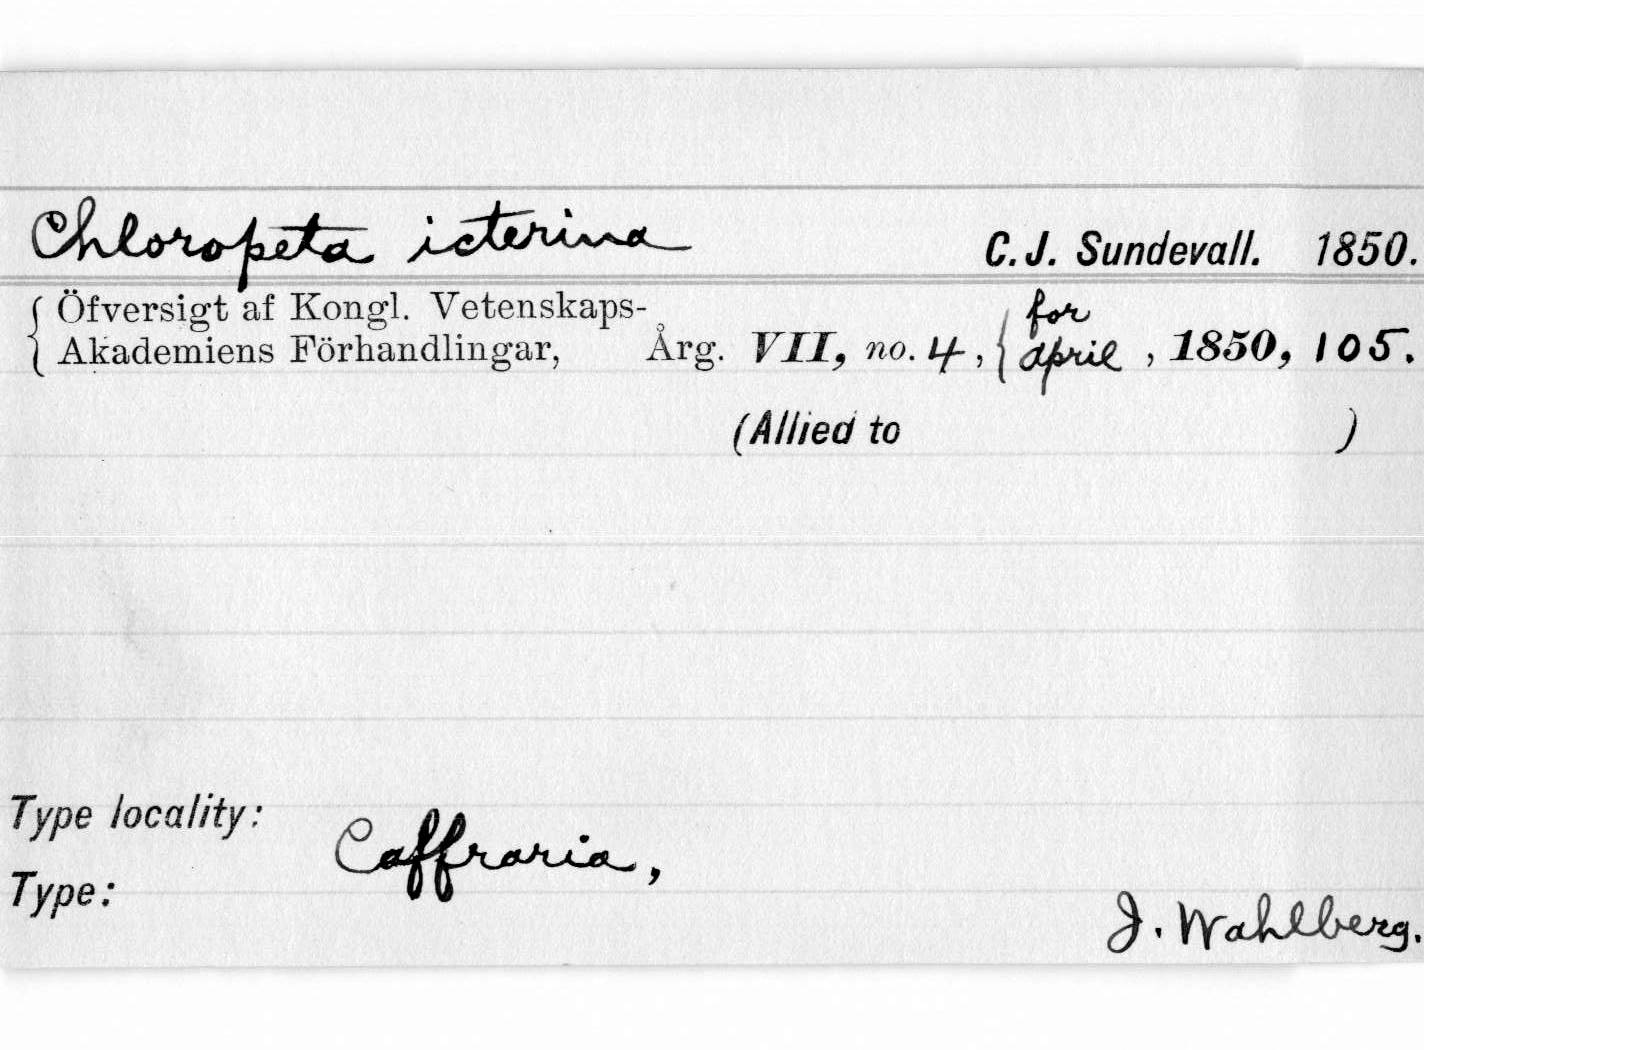 Chloropeta icterina C. J. Sundevall. 1850.
{ Öfversigt af Kongl. Vetenskaps- for
Akademiens Förhandlingar, Årg. VII, no. 4, { april , 1850, 105.
(Allied to )
Type locality:
Caffraria,
Type:
J. Wahlberg.